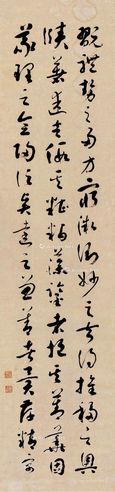 翫體勢之多方窮微測妙之夫得推移之奧
賾著述者假其糟粕藻鑒者挹其菁華固
義理之會歸信賢達之兼善者矣存精寓